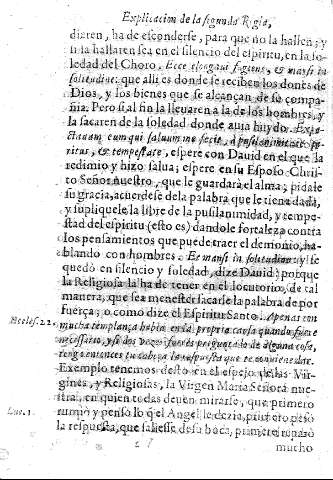 Explicacion de la segunda Regla,
dieren, ha de esconderse, para que no la hallen; y
si la hallaren sea en el silencio del espiritu, en la so-
ledad del Choro. Ecce elongaui fugiens, & mansi in
solitudine: que alli es donde se reciben los dones de
Dios, y los bienes que se alcançan de su compa-
ñia. Pero si al fin la lleuaren a la de los hombres, y
la sacaren de la soledad donde auia huydo. Ex-
pectabam eum qui saluum me fecit, à pusillanimitate spi-
ritus, & tempestate, espere con David en el que la
redimio y hizo salua; espere en su Esposo Chris-
to Señor nuestro, que le guardarà el alma; pidale
su gracia, acuerdese de la palabra que le tiene dada,
y supliquele la libre de la pusilanimidad, y tempe-
stad del espiritu (esto es) dandole fortaleza contra
los pensamientos que puede traer el demonio, ha-
blando con hombres. Et mansi in solitudine: y se
quedò en silencio y soledad, dize David: porque
la Religiosa la ha de tener en el locutorio, de tal
manera, que sea menester sacarle la palabra de por
fuerça; o como dize el Espiritu Santo. Apenas con
Eccles. 22. mucha templança habla en la propria causa quando fuere
necessario, y si dos vezes fueres preguntado de alguna cosa,
tenga entonces tu cabeça la respuesta que te conviene dar.
Exemplo tenemos desto en el espejo de las Vir-
gines, y Religiosas, la Virgen Maria Señora nue-
stra, en quien todas deuen mirarse, que primero
Luc. 1. rumiò y pensò lo q̃ el Angel le dezia, primero pesò
la respuesta, que saliesse de su boca, primero reparò
mucho